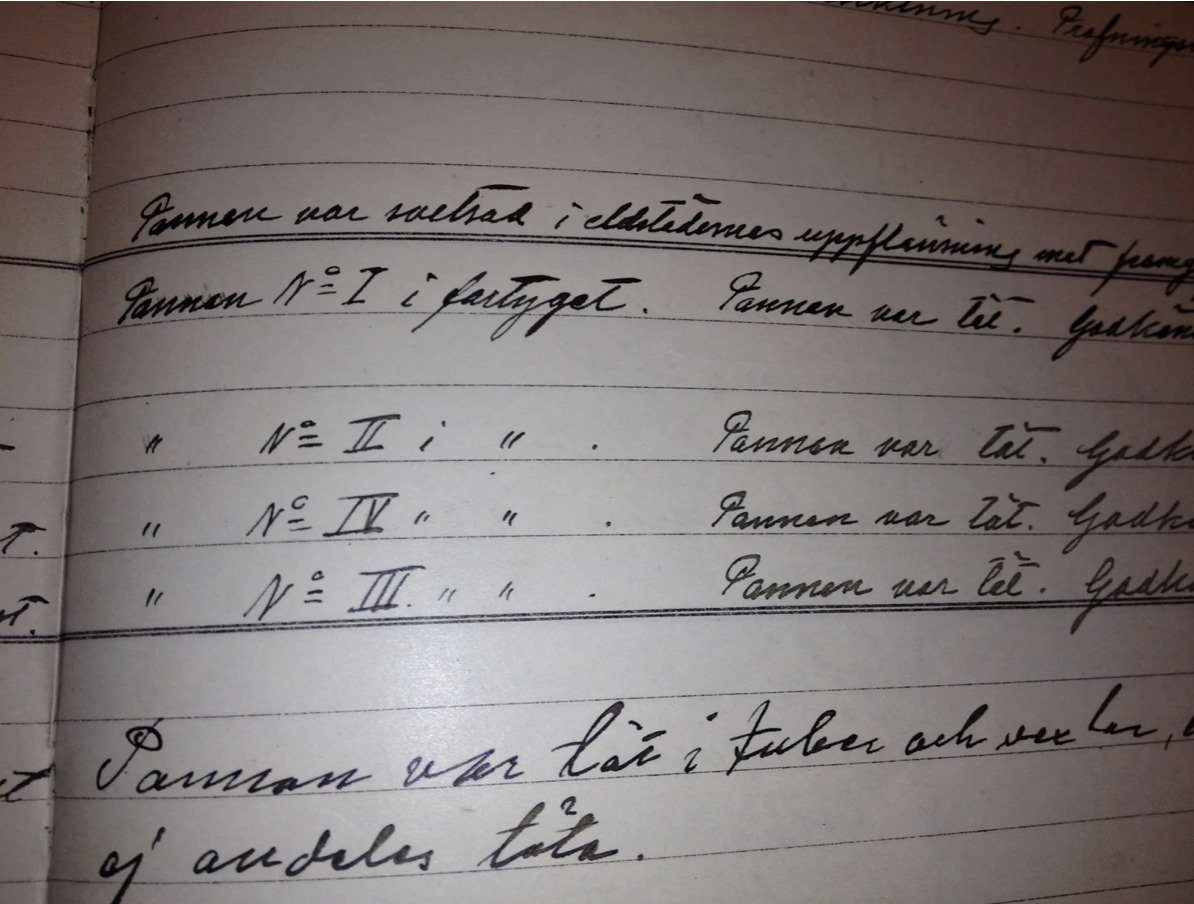 Profnings
Pannan var svetsad i eldstädernas uppflänsning mot
Pannan No I i fartyget. Pannan var tät. Godkän
" No II i " . Pannan var tät. Godk
T. " No IV " " . Pannan var tät. Godk
" No III. " " . Pannan var tät. Godk
Pannan var tät i tuber och
ej alldeles täta.